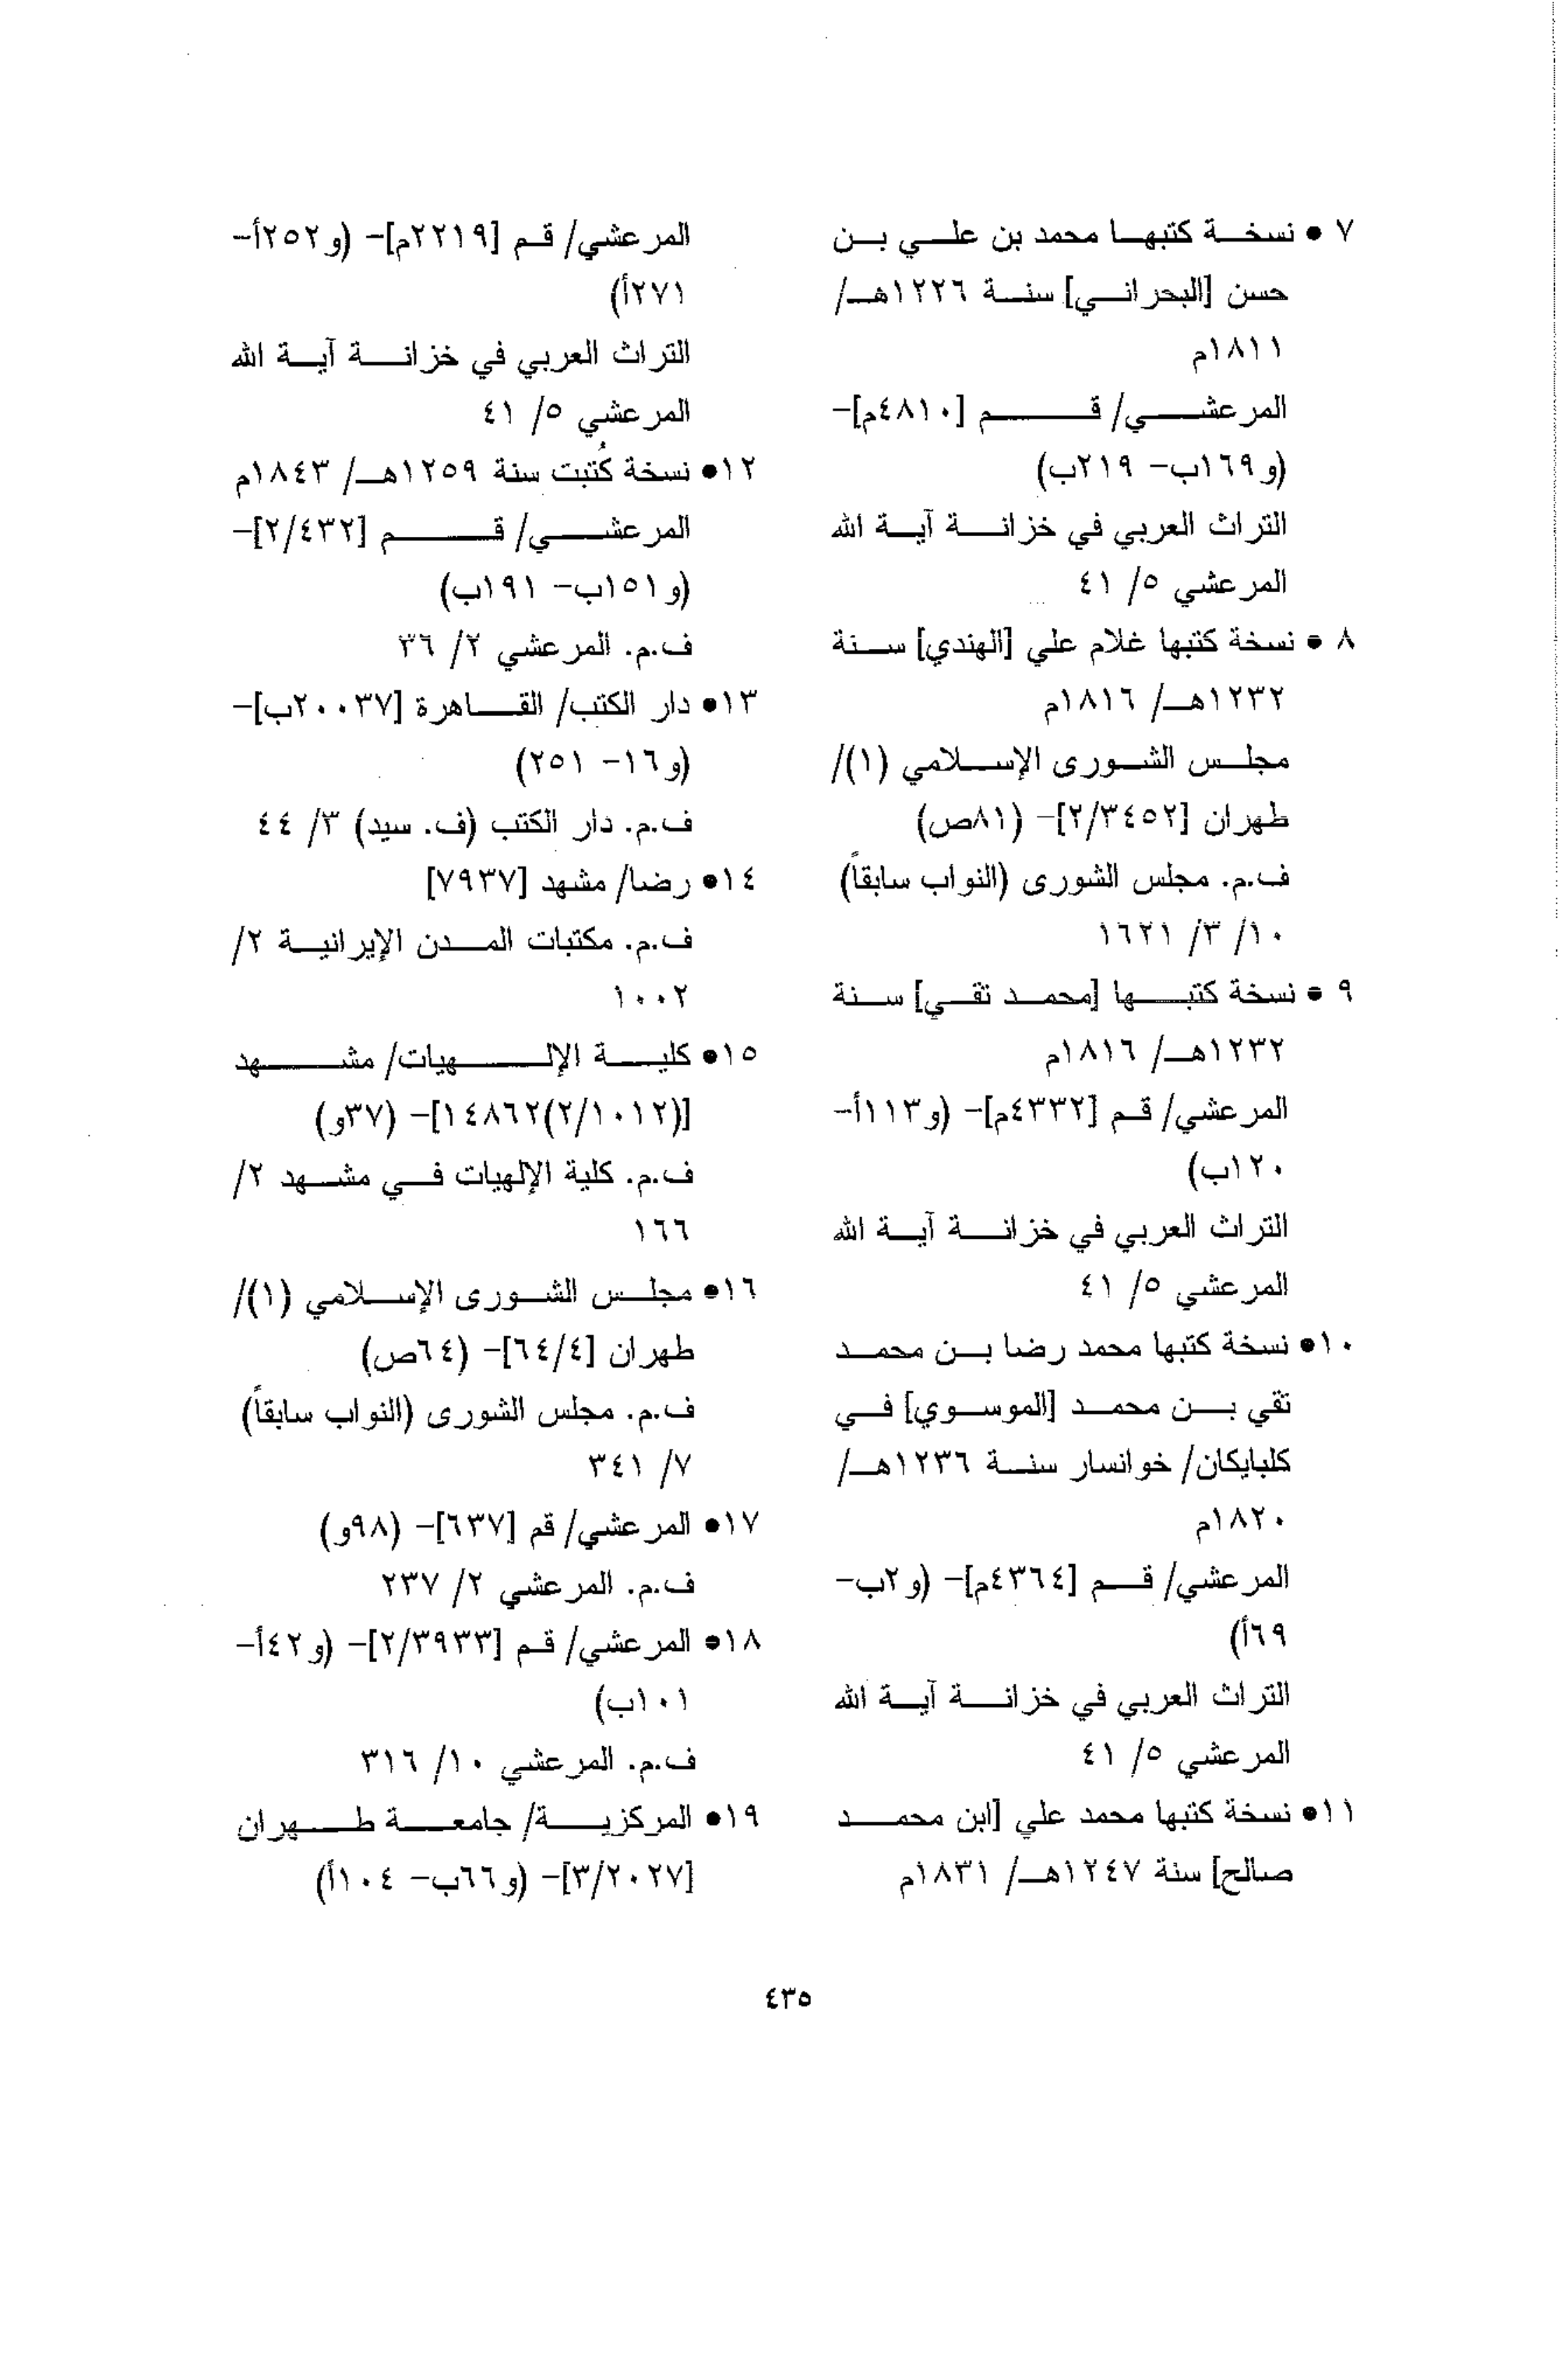 ٧ • نسخة كتبها محمد بن علي بن
حسن [البحراني] سنة ١٢٢٦هـ/
١٨١١م
المرعشي/ قم [٤٨١٠م]-
(و١٦٩ب- ٢١٩ب)
التراث العربي في خزانة آية الله
المرعشي ٥/ ٤١
٨ • نسخة كتبها غلام علي [الهندي] سنة
١٢٣٢هـ/ ١٨١٦م
مجلس الشورى الإسلامي (١)/
طهران [٢/٣٤٥٢]- (٨١ص)
ف.م. مجلس الشورى (النواب سابقاً)
١٠/ ٣/ ١٦٢١
٩ • نسخة كتبها [محمد تقي] سنة
١٢٣٢هـ/ ١٨١٦م
المرعشي/ قم [٤٣٣٢م]- (و١١٣أ-
١٢٠ب)
التراث العربي في خزانة آية الله
المرعشي ٥/ ٤١
١٠• نسخة كتبها محمد رضا بن محمد
تقي بن محمد [الموسوي] في
كلبايكان/ خوانسار سنة ١٢٣٦هـ/
١٨٢٠م
المرعشي/ قم [٤٣٦٤م]- (و٢ب-
٦٩أ)
التراث العربي في خزانة آية الله
المرعشي ٥/ ٤١
١١• نسخة كتبها محمد علي [ابن محمد
صالح] سنة ١٢٤٧هـ/ ١٨٣١م
المرعشي/ قم [٢٢١٩م]- (و٢٥٢أ-
٢٧١أ)
التراث العربي في خزانة آية الله
المرعشي ٥/ ٤١
١٢• نسخة كُتبت سنة ١٢٥٩هـ/ ١٨٤٣م
المرعشي/ قم [٢/٤٣٢]-
(و١٥١ب- ١٩١ب)
ف.م. المرعشي ٢/ ٣٦
١٣• دار الكتب/ القاهرة [٢٠٠٣٧ب]-
(و١٦- ٢٥١)
ف.م. دار الكتب (ف. سيد) ٣/ ٤٤
١٤• رضا/ مشهد [٧٩٣٧]
ف.م. مكتبات المدن الإيرانية ٢/
١٠٠٢
١٥• كلية الإلهيات/ مشهد
[(٢/١٠١٢)١٤٨٦٢]- (٣٧و)
ف.م. كلية الإلهيات في مشهد ٢/
١٦٦
١٦• مجلس الشورى الإسلامي (١)/
طهران [٦٤/٤]- (٦٤ص)
ف.م. مجلس الشورى (النواب سابقاً)
٧/ ٣٤١
١٧• المرعشي/ قم [٦٣٧]- (٩٨و)
ف.م. المرعشي ٢/ ٢٣٧
١٨• المرعشي/ قم [٢/٣٩٣٣]- (و٤٢أ-
١٠١ب)
ف.م. المرعشي ١٠/ ٣١٦
١٩• المركزية/ جامعة طهران
[٣/٢٠٢٧]- (و٦٦ب- ١٠٤أ)
٤٣٥